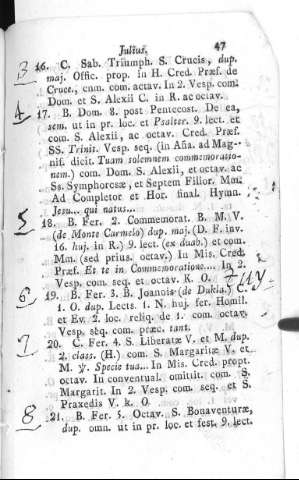 Julius. 47
3 16. C. Sab. Triumph. S. Crucis, dup.
maj. Offic. prop. in H. Cred. Præf. de
Cruce, cum. com. octav. In 2. Vesp. com.
Dom. et S. Alexii C. in R. ac octav.
4 17. B. Dom. 8. post Pentecost. De ea,
sem. ut in pr. loc. et Psalter. 9. lect. et
com. S. Alexii, ac octav. Cred. Præf.
SS. Trinit. Vesp. seq. (in Aña. ad Mag-
nif. dicit. Tuam solemnem commemoratio-
nem.) com. Dom. S. Alexii, et octav. ac
Ss. Symphorosæ, et Septem Filior. Mm.
Ad Completor et Hor. final. Hymn.
Jesu... qui natus...
5 18. B. Fer. 2. Commemorat. B. M. V.
(de Monte Carmelo) dup. maj. (D. F. inv.
16. huj. in R.) 9. lect. (ex duab.) et com.
Mm. (sed prius. octav.) In Mis. Cred.
Præf. Et te in Commemoratione... In 2.
Vesp. com. seq. et octav. K. O.
6 19. B. Fer. 3. B. Joannis (de Dukla.) C.
1. O. dup. Lects. 1. N. huj. fer. Homil.
et Ev. 2. loc. reliq. de 1. com. octav.
Vesp. seq. com. præc. tant.
7 20. C. Fer. 4. S. Liberatæ V. et M. dup.
2. class. (H.) com. S. Margaritæ V. et
M. ℣. Specie tua... In Mis. Cred. propt.
octav. In conventual. omittit. com. S.
Margarit. In 2. Vesp. com. seq. et S.
Praxedis V. k. O.
8 21. B. Fer. 5. Octav. S. Bonaventuræ,
dup. omn. ut in pr. loc. et fest. 9. lect.